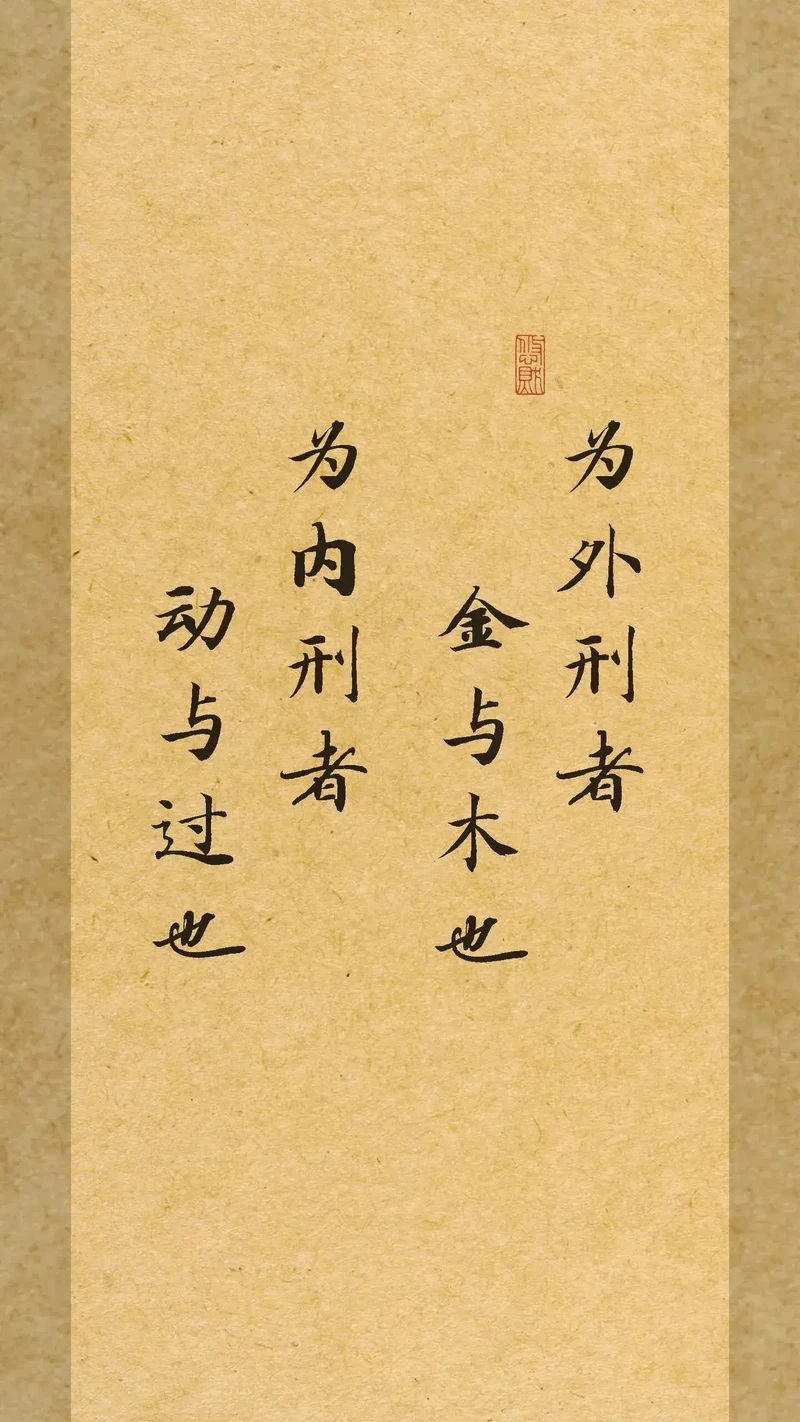 为外刑者
金与木也
为内刑者
动与过也